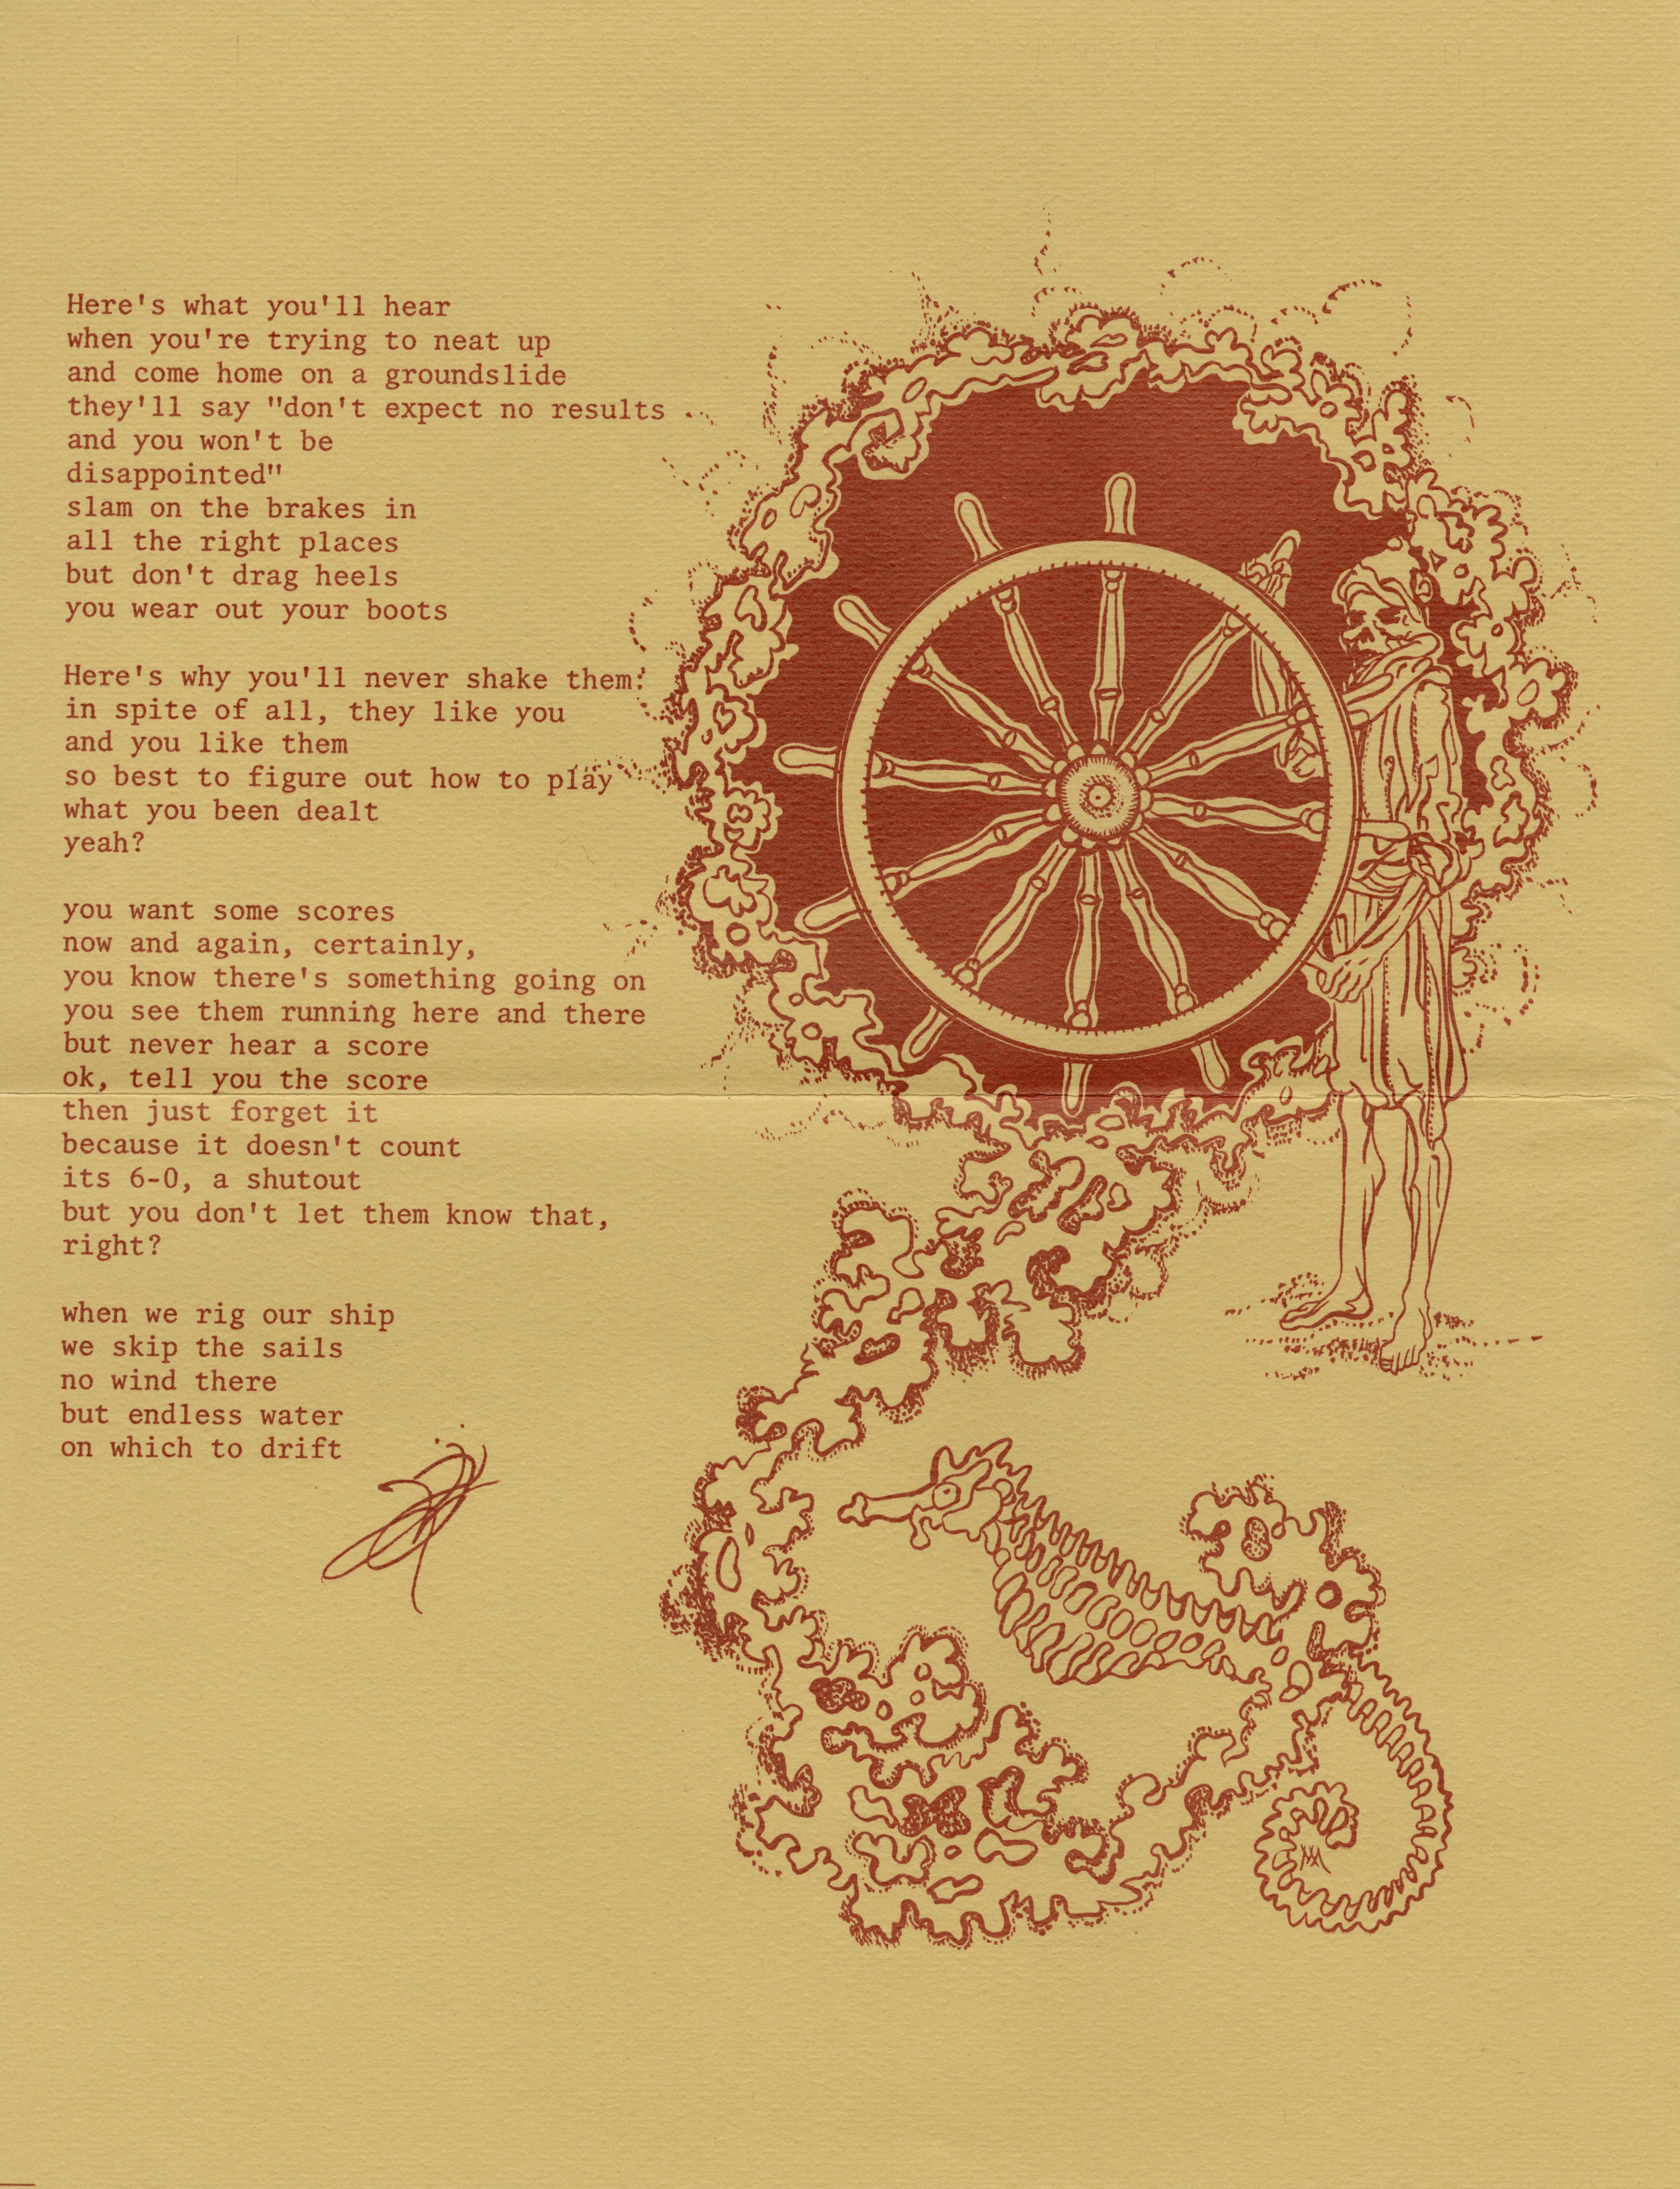 Here's what you'll hear
when you're trying to neat up
and come home on a groundslide
they'll say "don't expect no results
and you won't be
disappointed"
slam on the brakes in
all the right places
but don't drag heels
you wear out your boots
Here's why you'll never shake them:
in spite of all, they like you
and you like them
so best to figure out how to play
what you been dealt
yeah?
you want some scores
now and again, certainly,
you know there's something going on
you see them running here and there
but never hear a score
ok, tell you the score
then just forget it
because it doesn't count
its 6-0, a shutout
but you don't let them know that,
right?
when we rig our ship
we skip the sails
no wind there
but endless water
on which to drift